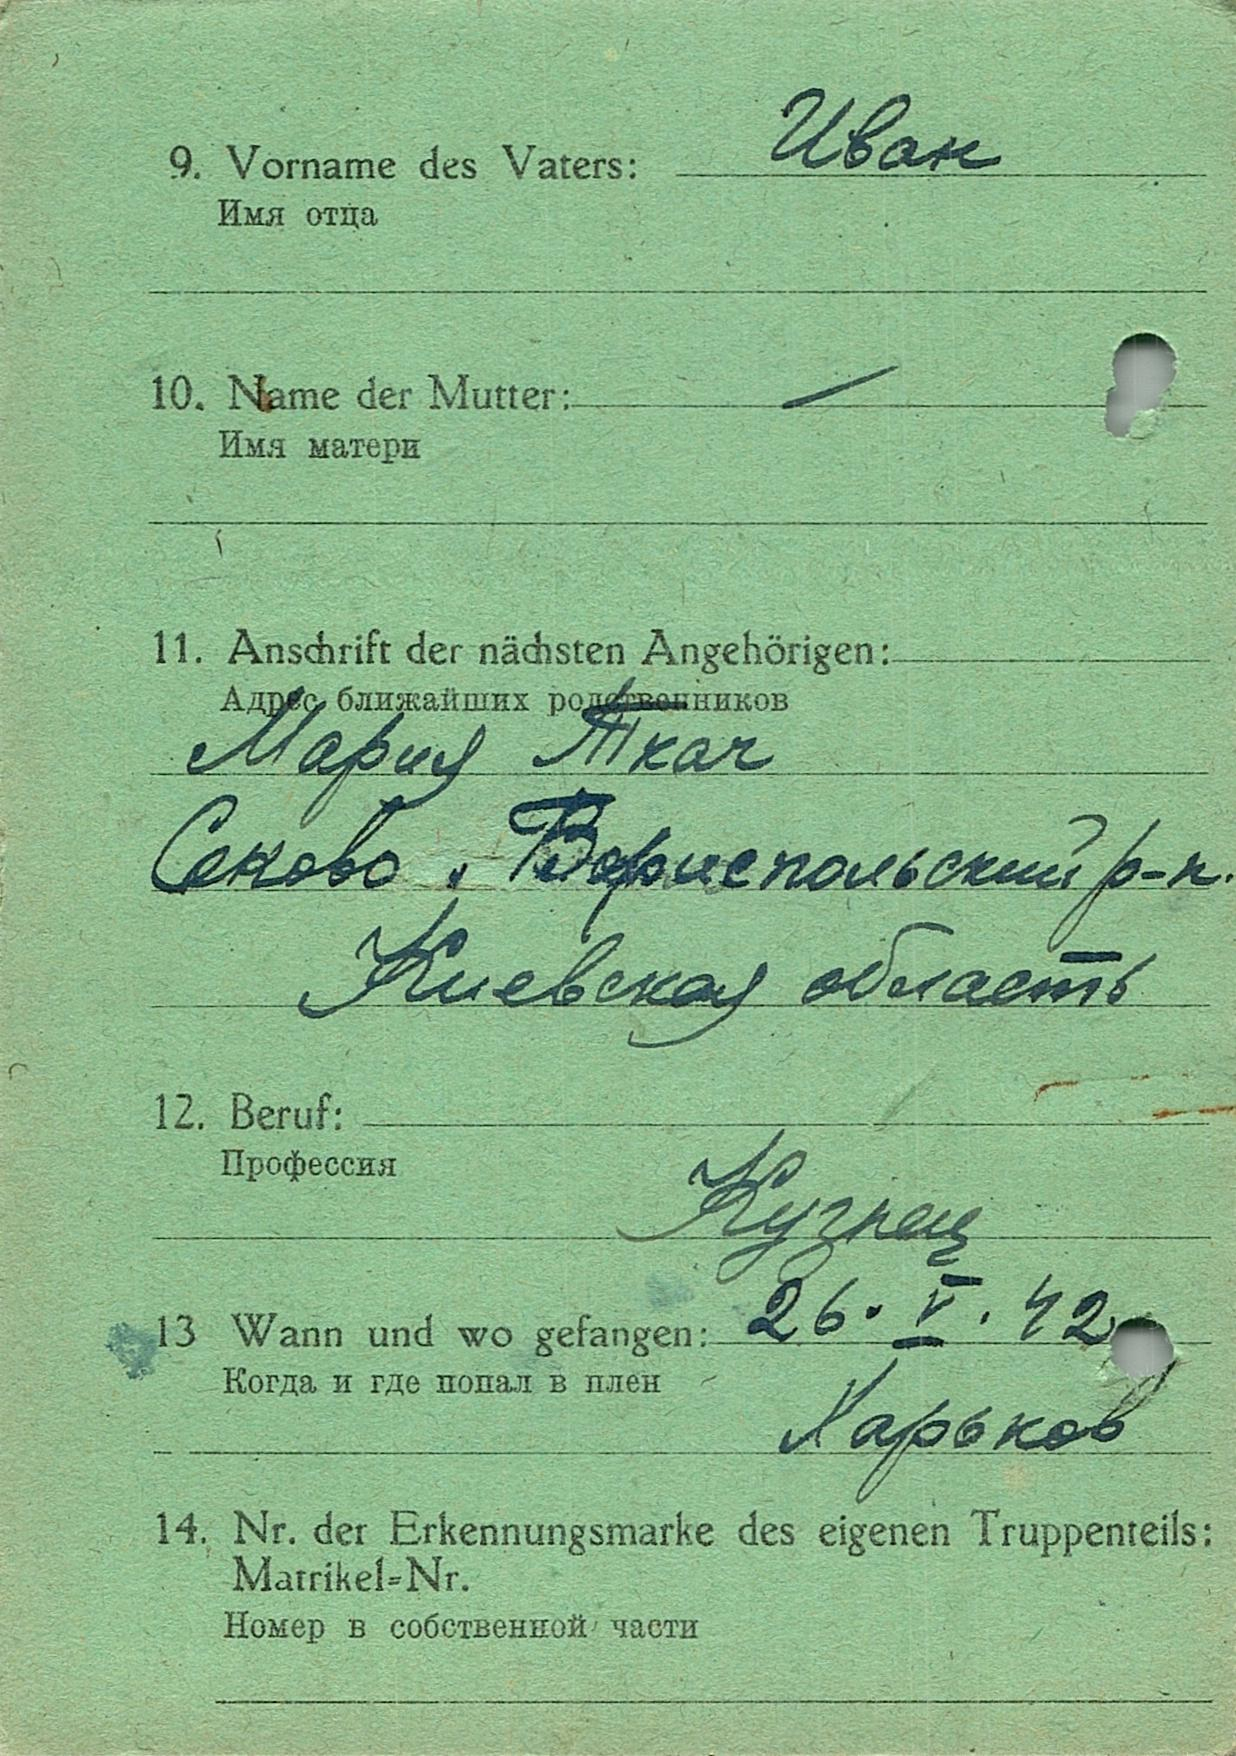 9. Vorname des Vaters: Иван
Имя отца
10. Name der Mutter: —
Имя матери
11. Anschrift der nächsten Angehörigen:
Адрес ближайших родственников
Мария Ткач
Бориспольский р-н.
Киевская область
12. Beruf:
Профессия
Кузнец
13 Wann und wo gefangen: 26. V. 42
Когда и где попал в плен
Харьков
14. Nr. der Erkennungsmarke des eigenen Truppenteils:
Matrikel=Nr.
Номер в собственной части